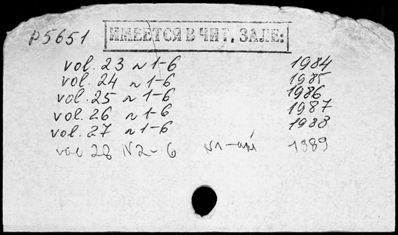 p5651 ИМЕЕТСЯ В ЧИТ. ЗАЛЕ:
vol. 23 N 1-6 1984
vol. 24 N 1-6 1985
vol. 25 N 1-6 1986
vol. 26 N 1-6 1987
vol. 27 N 1-6 1988
vol 28 N2-6 1989